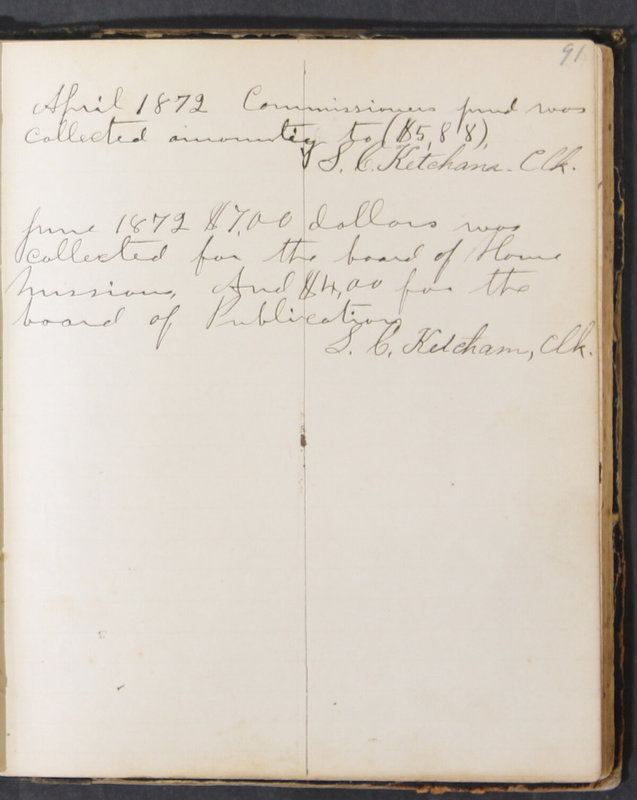 91
April 1872 Commissioners fund was
collected amounting to ($5,88),
S. C. Ketcham. Clk.
June 1872 $7,00 dollars was
collected for the board of Home
Missions, And $4,00 for the
board of Publication
S. C. Ketcham, Clk.